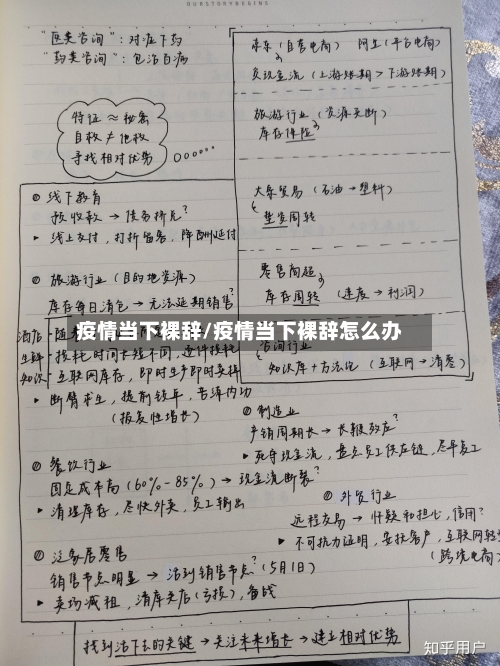 OURSTORYBEGINS
"医类咨询"：对症下药
"药类咨询"：包治百病
特征 ≈ 秘密
自救 ≠ 他救
寻找相对优势
京东（自营电商） 阿里（平台电商）
负现金流（上游账期 > 下游账期）
旅游行业（资源类断）
库存保险
大宗贸易（石油→塑料）
垫资周转
零售商超
库存周转（速度→利润）
咨询行业
知识库+方法论（互联网→清零）
① 线下教育
预收款→债务挤兑？
▸ 线上交付，打折留客，降酬延付
② 旅游行业（目的地资源）
库存每日清包→无法延期销售？
酒店
生鲜
知识
疫情当下裸辞/疫情当下裸辞怎么办
损耗时间长短不同，边际损耗
互联网库存，即时生产即时卖掉
▸ 断臂求生，提前锁年，苦练内功
（报复性增长）
③ 餐饮行业
固定成本高（60%-85%）→现金流断裂？
▸ 清理库存，尽快外卖，员工输出
④ 泛家居零售
销售节点明显→活到销售节点？（5月1日）
▸ 卖场减租，清库关店（亏损），备战
⑤ 制造业
产销周期长→长鞭效应？
▸ 死守现金流，盘点员工供应链，尽早复工
⑥ 外贸行业
远程交易→怀疑和担心，信用？
▸ 不可抗力证明，安抚客户，互联网转型
（跨境电商）
找到活下去的关键→关注未来增长→建立相对优势
知乎用户